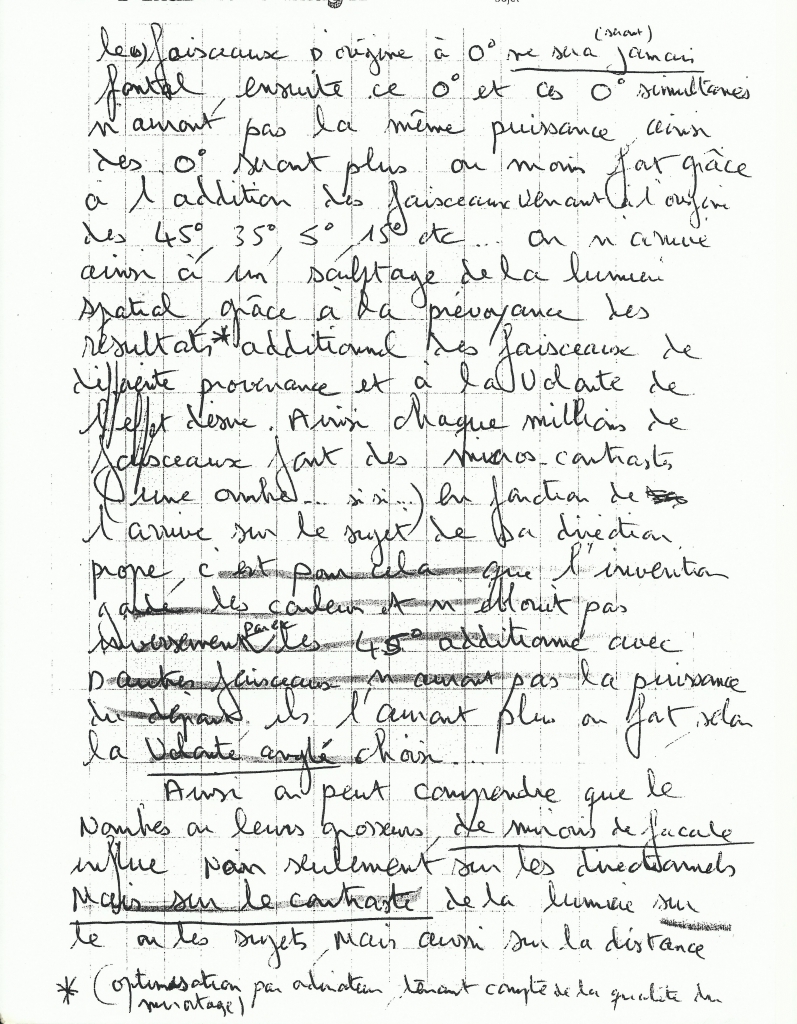 le(s) faisceaux d'origine à 0° ne sera jamais
(seront)
frontal ensuite ce 0° et ces 0° simultanés
n'auront pas la même puissance, ainsi
des 0° seront plus ou moins fort grâce
à l'addition des faisceaux venant à l'origine
des 45°, 35°, 5°, 15° etc... On n'arrive
ainsi à un sculptage de la lumière
spatial, grâce à la prévoyance des
résultats* additionnel des faisceaux de
différente provenance et à la volonté de
l'effet désiré. Ainsi chaque millions de
faisceaux font des micros-contrastes
(une ombre... si si...) en fonction de
l'arrivé sur le sujet de sa direction
propre, c'est pour cela que l'invention
garde les couleurs et n'éblouit pas
inversement par ex les 45° additionné avec
d'autres faisceaux n'auront pas la puissance
du départ ils l'auront plus ou fort, selon
la volonté anglé choisi...
Ainsi on peut comprendre que le
Nombres ou leurs grosseurs, de mirois de facade
influe non seulement sur les directionnels
Mais sur le contraste de la lumière sur
le ou les sujets, Mais aussi sur la distance
* (optimisation par ordinateur, tenant compte de la qualité du
miroitage)